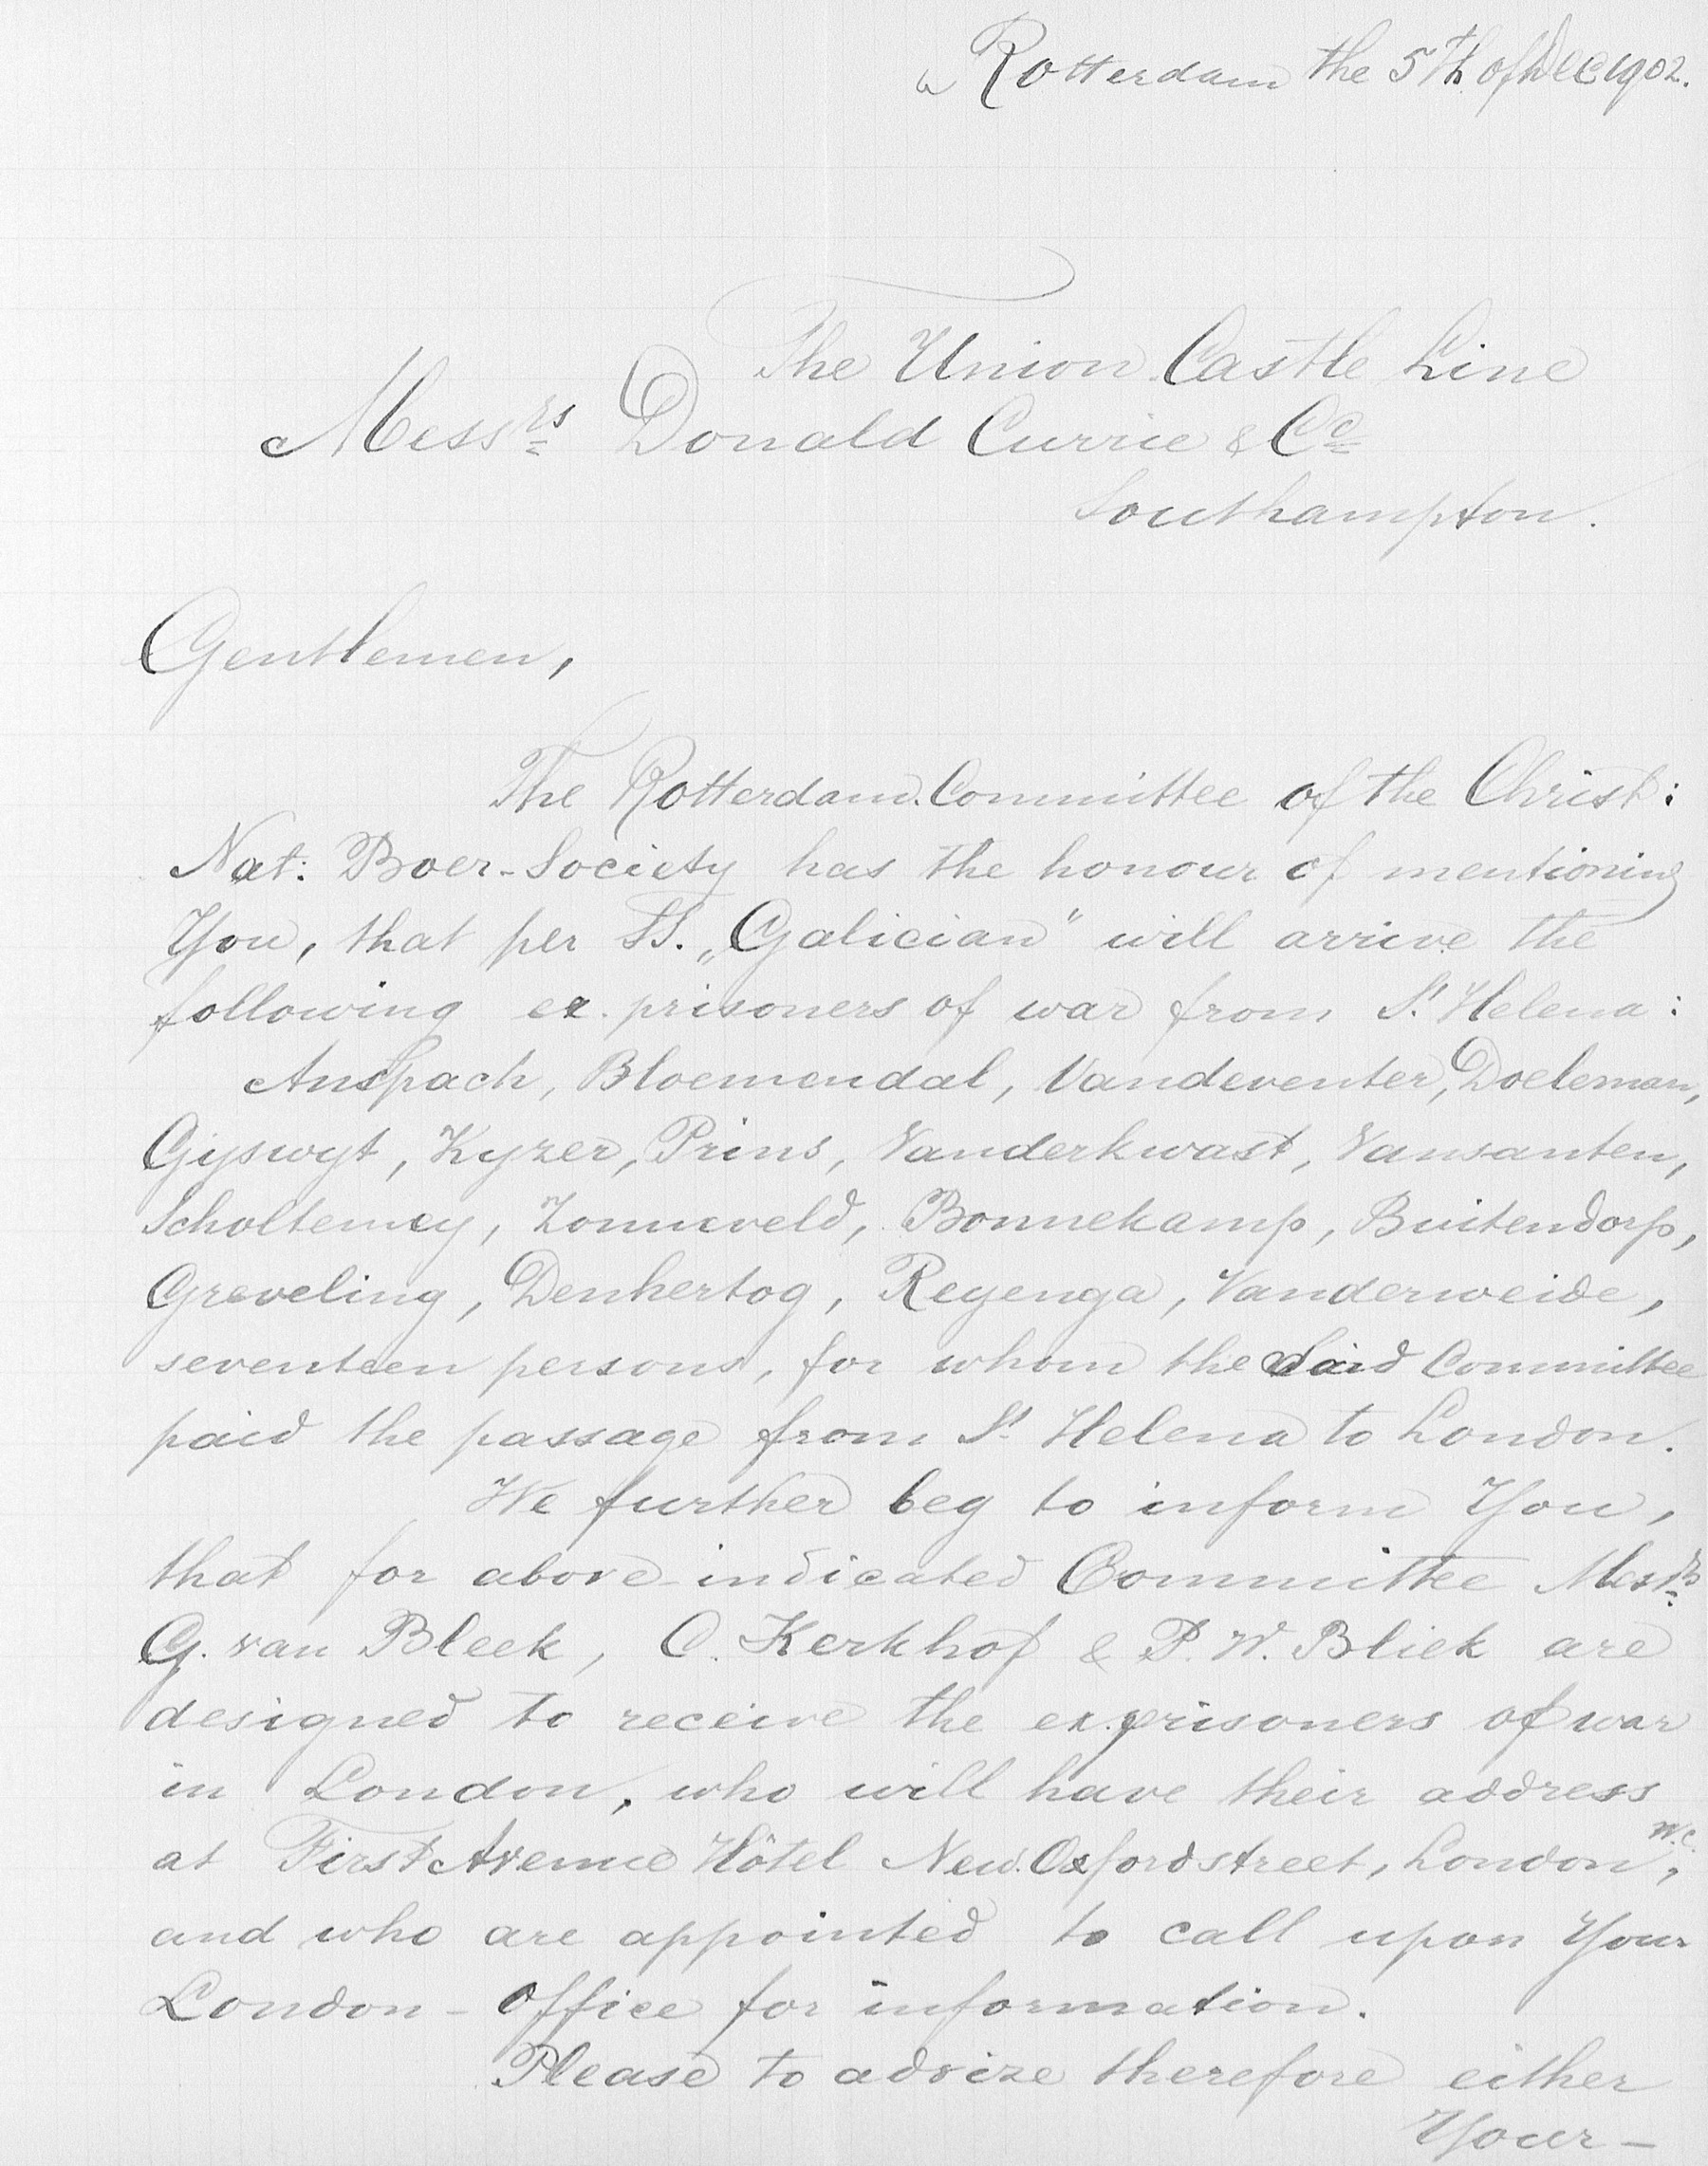 Rotterdam the 5th of Dec 1902.
The Union Castle Line
Messrs Donald Currie & Co
Southampton.
Gentlemen,
The Rotterdam Committee of the Christ:
Nat: Boer-Society has the honour of mentioning
You, that per SS. „Galician" will arrive the
following ex. prisoners of war from St. Helena:
Anspach, Bloemendal, Vandeventer, Doeleman,
Gijswyt, Kyzer, Prins, Vanderkwast, Vansanten,
Scholtemey, Zonneveld, Bonnekamp, Buitendorp,
Greveling, Denhertog, Reyenga, Vanderweide,
seventeen persons, for whom the said Committee
paid the passage from St Helena to London.
We further beg to inform You,
that for above-indicated Committee Messrs
G. van Bleek, C. Kerkhof & P. W. Bliek are
designed to receive the ex.prisoners of war
in London, who will have their address
at First Avenue Hôtel New.Oxfordstreet, London W.C.,
and who are appointed to call upon Your
London-Office for information.
Please to advize therefore either
Your-